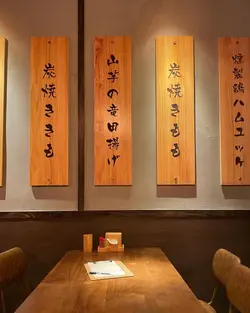 炭焼ききもも
山芋の竜田揚げ
炭焼ききもも
燻製鶏ハムユッケ